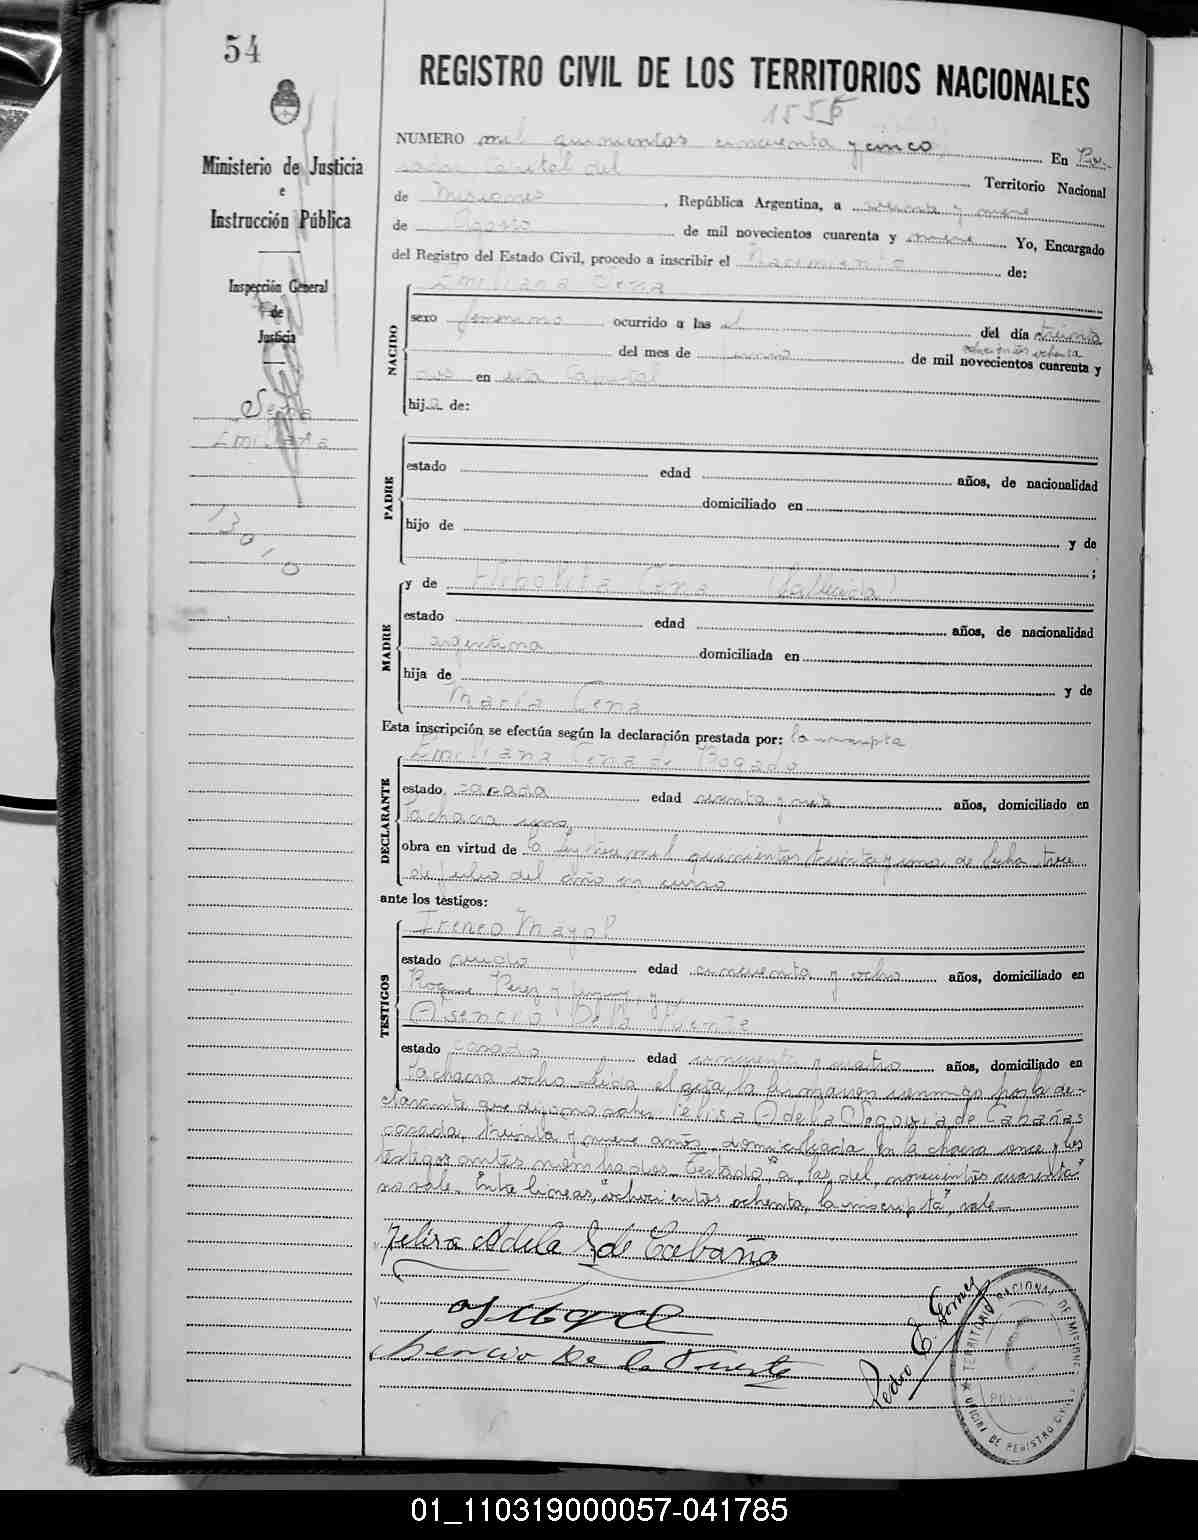 54
REGISTRO CIVIL DE LOS TERRITORIOS NACIONALES
1555
Ministerio de Justicia
e
Instrucción Pública
Inspección General
de
Justicia
Emiliana
NUMERO mil quinientos cincuenta y cinco En Po-
sadas Capital del Territorio Nacional
de Misiones, República Argentina, a veinte y nueve
de Agosto de mil novecientos cuarenta y nueve Yo, Encargado
del Registro del Estado Civil, procedo a inscribir el Nacimiento de:
NACIDO
Emiliana
sexo femenino ocurrido a las el del día treinta
ochocientos ochenta
del mes de junio de mil novecientos cuarenta y
dos en esta Capital
hija de:
PADRE
estado edad años, de nacionalidad
domiciliado en
hijo de y de
;
MADRE
y de Hipolita Cena (fallecida)
estado edad años, de nacionalidad
argentina domiciliada en
hija de y de
María Cena
Esta inscripción se efectúa según la declaración prestada por: la inscripta
DECLARANTE
Emiliana Cena de Bogado
estado casada edad sesenta y siete años, domiciliado en
la chacra una
obra en virtud de la ley trece mil quinientos treinta y uno de fecha trece
de julio del año en curso
ante los testigos:
TESTIGOS
Ireneo Mayol
estado viudo edad cincuenta y ocho años, domiciliado en
Roque Perez y y
Asencio De la Puente
estado casado edad cincuenta y cuatro años, domiciliado en
la chacra ocho Leida el acta, la firmaron conmigo por la de-
clarante que dijo no saber Felisa Adela Segovia de Cabañas
casada, treinta y nueve años, domiciliada en la chacra once y los
testigos antes nombrados. Testado "a las, del, novecientos cuarenta"
no vale. Entre líneas "ochocientos ochenta, la inscripta", vale.
Felisa Adela S de Cabaña
Asencio De la Puente
Pedro E. Gomez
TERRITORIO NACIONAL DE MISIONES
OFICINA DE REGISTRO CIVIL
01_110319000057-041785